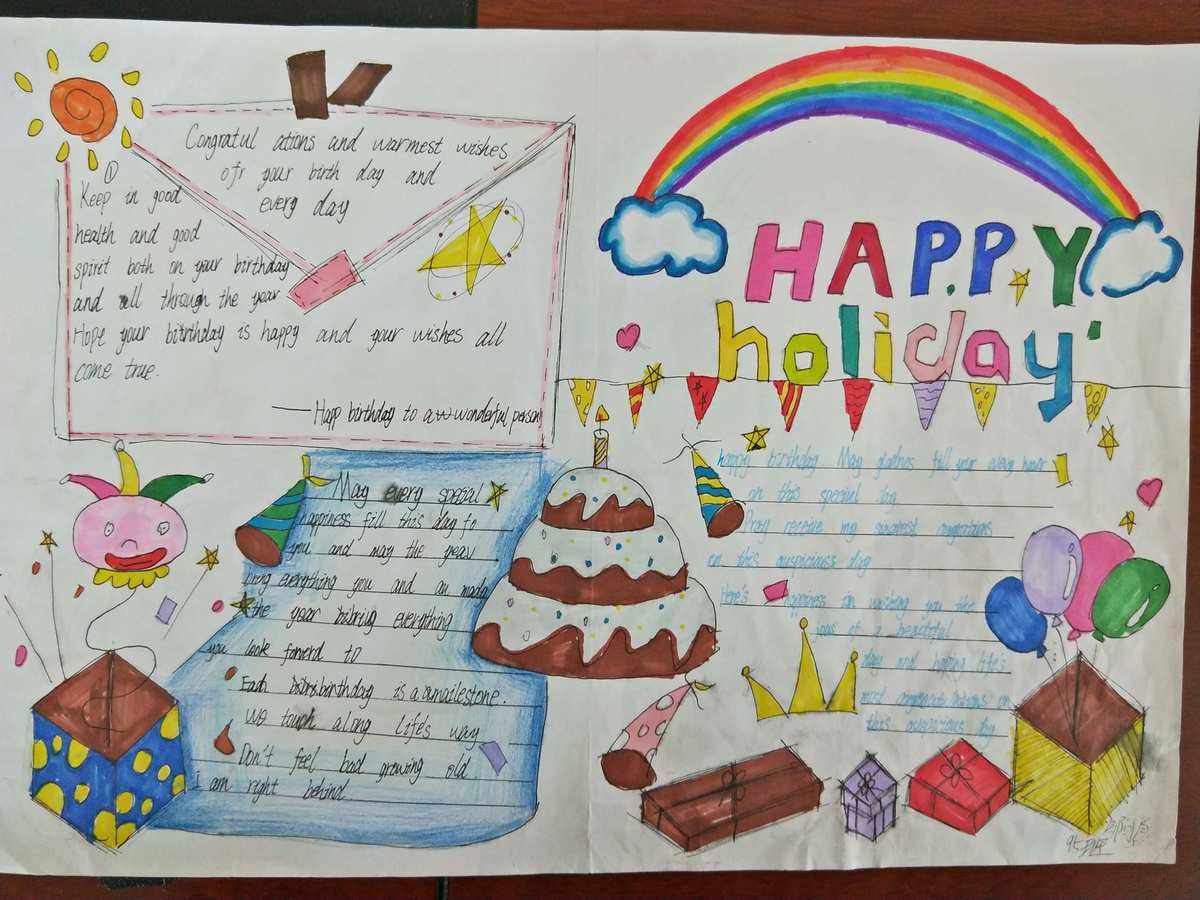 Congratul ations and warmest wishes
ofr your birth day and
every day
①
Keep in good
health and good
spirit both on your birthday
and all through the year
Hope your birthday is happy and your wishes all
come true.
—Happ birthday to a wonderful person
May every special
happiness fill this day to
you and may the year
bring everything you and an made
the year bibring everything
you look forward to
Each birthday is a milestone.
we touch along life's way
Don't feel bad growing old
I am right behind
HAPPY
holiday
happy birthday May fill your
on this special
Pray receive my
on this auspicious day
Here's happiness in you the
of a beautiful
day and life's
most on
this